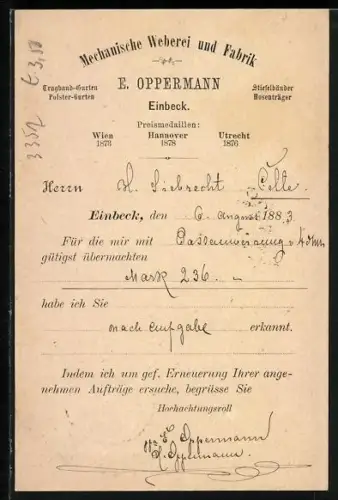 3351 E 3,50
Mechanische Weberei und Fabrik
E. OPPERMANN
Einbeck.
Tragband-Gurten
Polster-Gurten
Stiefelbänder
Hosenträger
Preismedaillen:
Wien Hannover Utrecht
1873 1878 1876
Herrn H. Siebrecht Celle
Einbeck, den 6. August 1883
Für die mir mit
gütigst übermachten
Mark 236. –
habe ich Sie
nach Aufgabe erkannt.
Indem ich um gef. Erneuerung Ihrer ange-
nehmen Aufträge ersuche, begrüsse Sie
Hochachtungsvoll
E. Oppermann
Oppermann